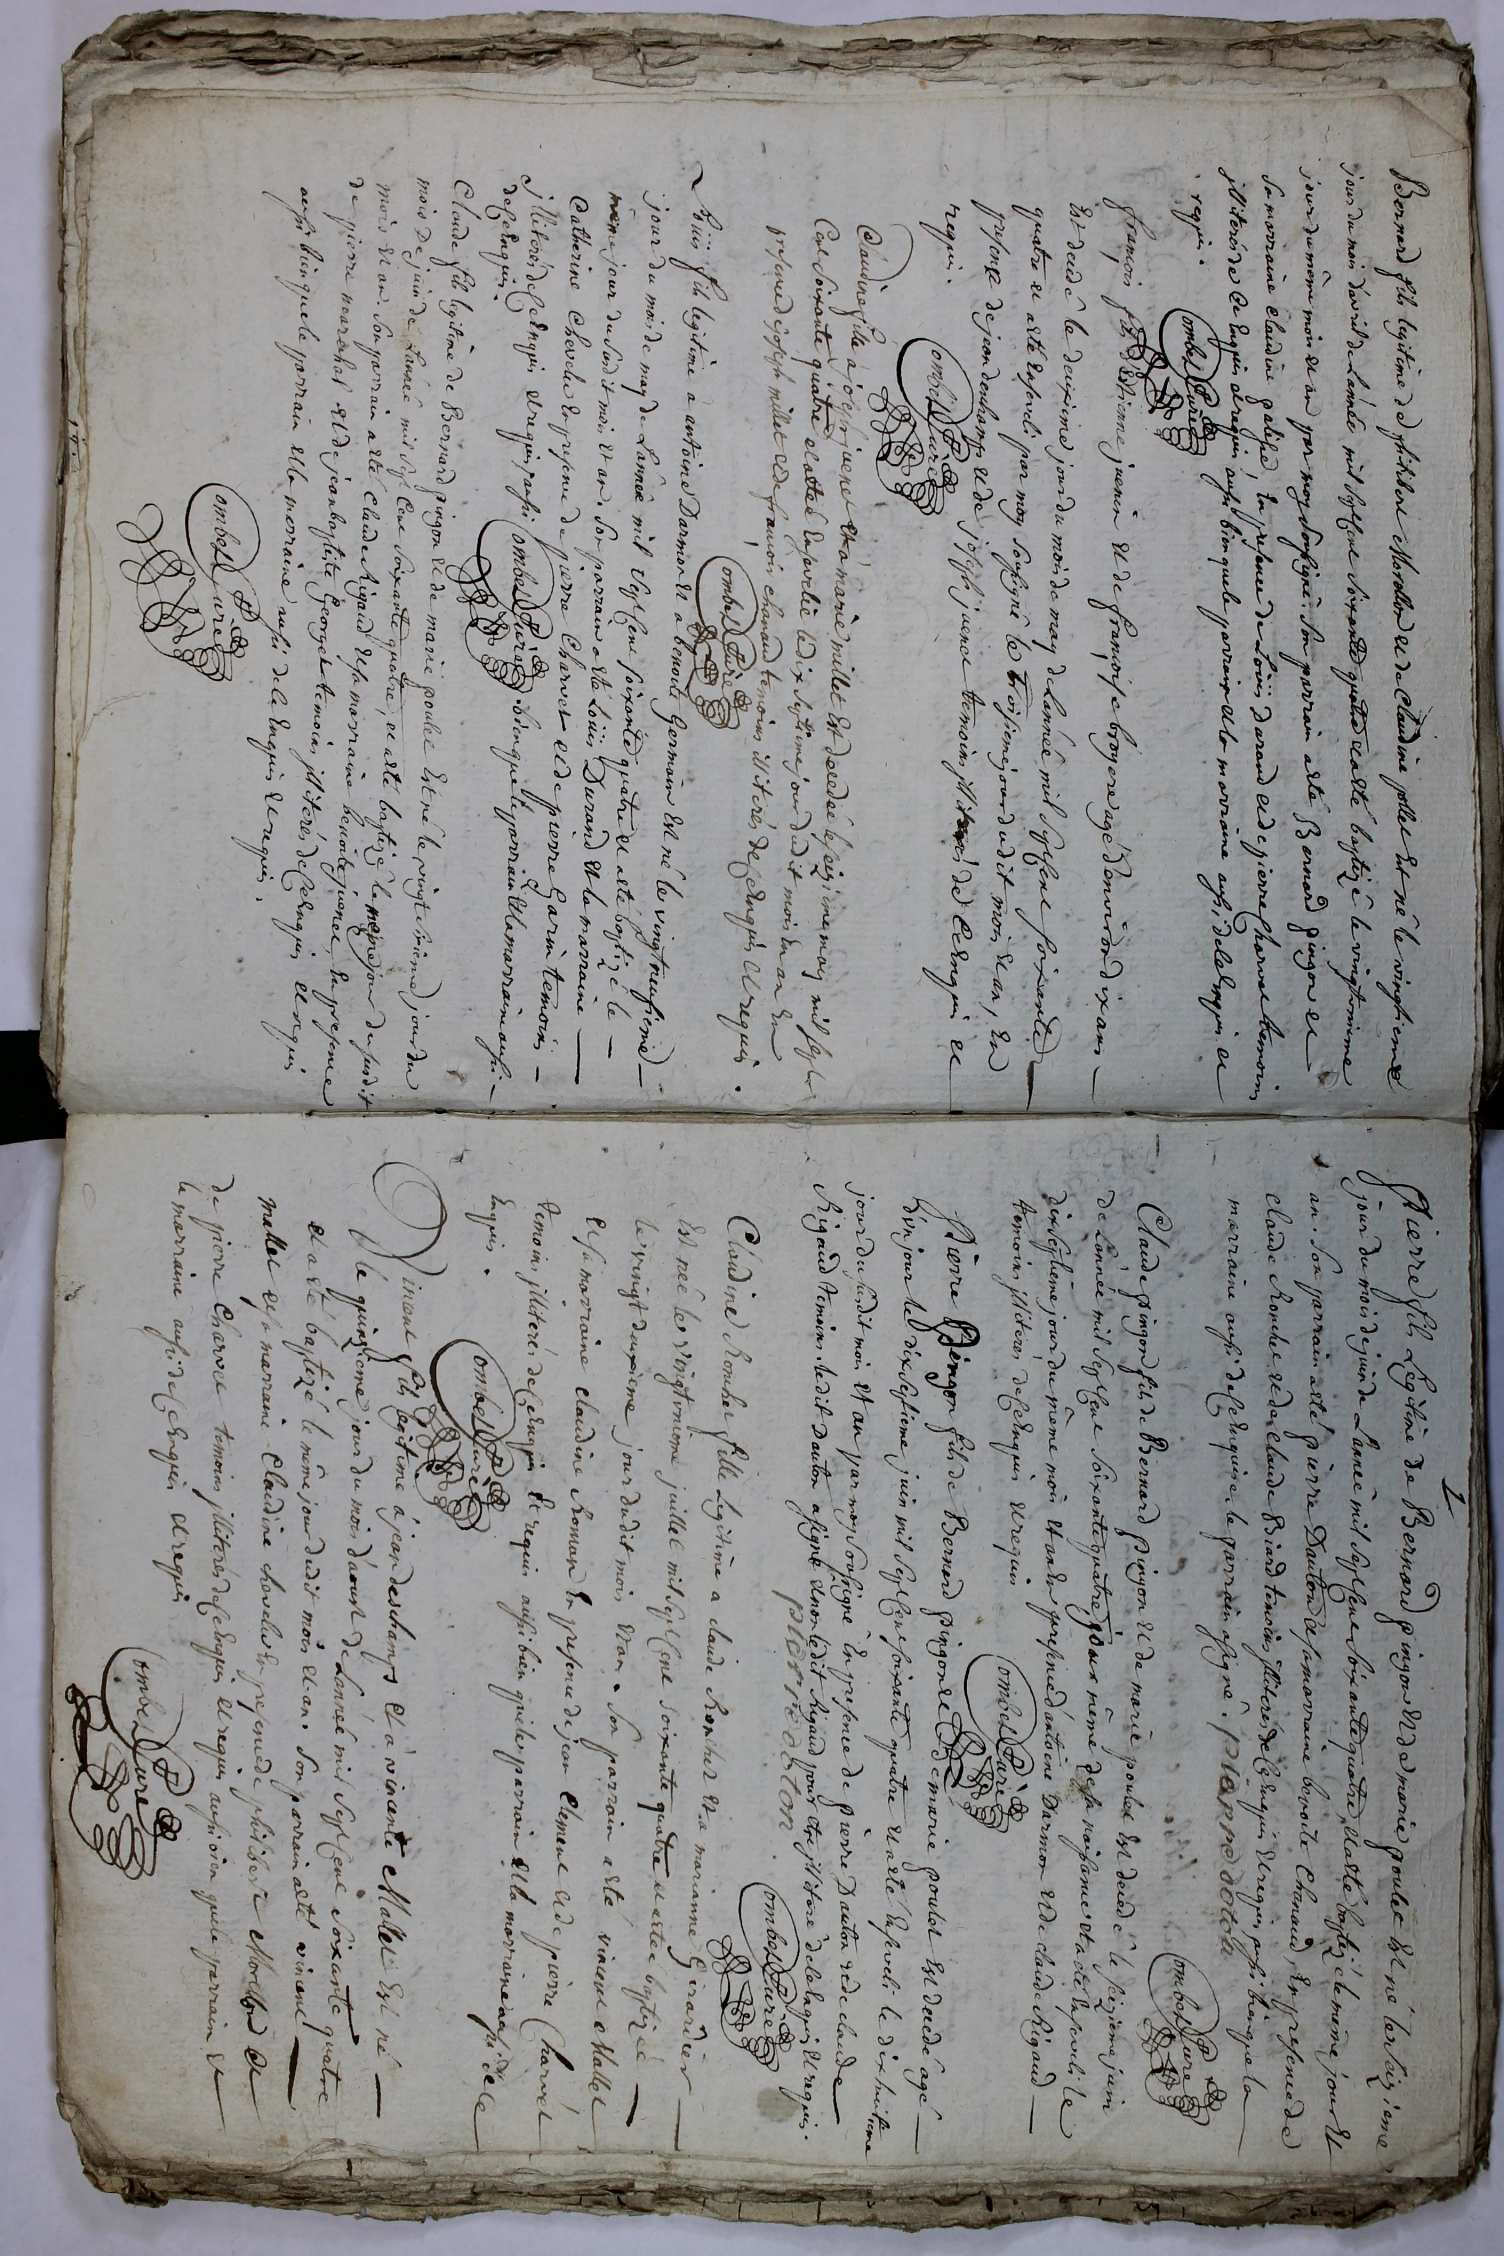 Bernard fils legitime de philibert Morellon et de Claudine jollet est né le vingtieme
jour du mois d'avril de l'année mil sept cent soixante quatre et a esté baptizé le vingtunieme
jour du même mois et an par moy soussigné. Son parrain a esté Bernard pingon et
sa marraine Claudine , en presence de Loüis darand et de pierre Charvet temoins
illiterés de ce enquis et requis aussi bien que le parrain et la marraine aussi de ce enquis et
requis.
Combet Curé
françois fils d'Estienne juenin et de françoise broyere agé d'environ dix ans
est decedé le deuxieme jour du mois de may de l'année mil sept cent soixante
quatre et a esté enseveli par moy soussigné le troisieme jour dudit mois et an, en
presence de jean deschamps et de joseph juenet temoins illiterés de ce enquis et
requis.
Combet Curé
Claudine fille a joseph juenet et a marie millet est decedée le seizieme may mil sept
cent soixante quatre et a esté ensevelie le dix septieme jour dudit mois et an en
presence de joseph millet et de françois chanaud temoins illiterés de ce enquis et requis.
Combet Curé
Loüis fils legitime a antoine Darmon et a benoite Germain est né le vingt neufieme
jour du mois de may de l'année mil sept cent soixante quatre et a esté baptizé le
même jour du susdit mois et an. Son parrain a esté Loüis Durand et la marraine
Catherine Chevelu en presence de pierre Charvet et de pierre Garin temoins
illiterés de ce enquis et requis aussi bien que le parrain et la marraine aussi
de ce enquis.
Combet Curé
Claude fils legitime de Bernard pingon et de marie poulet est né le jour du
mois de juin de l'année mil sept cent soixante quatre, et a esté baptizé le même jour du susdit
mois et an. Son parrain a esté claude Rigaud et sa marraine benoite juenet en presence
de pierre marechal et de jean baptiste Georget temoins illiterés de ce enquis et requis
aussi bien que le parrain et la marraine aussi de ce enquis et requis.
Combet Curé
1
Pierre fils legitime de Bernard pingon et de marie poulet est né le seizieme
jour du mois de juin de l'année mil sept cent soixante quatre, et a esté baptizé le même jour et
an. Son parrain a esté pierre Dauton et sa marraine benoite Chanaud, en presence de
claude Roncher et de claude Biard temoins illiterés de ce enquis et requis aussi bien que la
marraine aussi de ce enquise. le parrain a signé. pierre doton
Combet Curé
Claude pingon fils de Bernard pingon et de marie poulet est decedé le seizieme juin
de l'année mil sept cent soixante quatre jour même de sa naissance et a esté enseveli le
dix septieme jour du même mois et an en presence d'antoine Darmon et de claude Rigaud
temoins illiterés de ce enquis et requis
Combet Curé
Pierre Pingon fils de Bernard pingon et de marie poulet est decedé agé
d'un jour le dix septieme juin mil sept cent soixante quatre et a esté enseveli le dix huitieme
jour du susdit mois et an par moy soussigné en presence de pierre Dauton et de claude
Rigaud temoins. ledit Dauton a signé et non ledit Rigaud pour etre illiteré de ce enquis et requis.
pierre doton
Combet Curé
Claudine Roncher fille legitime a claude Roncher et a marianne Girardier
est née le vingtunieme juillet mil sept cent soixante quatre et a estée baptizée
le vingt deuxieme jour dudit mois et an. Son parrain a esté vincent Mallet
et sa marraine claudine Romans en presence de jean clement et de pierre Charvet
temoins illiterés de ce enquis et requis aussi bien que le parrain et la marraine aussi de ce
enquis.
Combet Curé
Vincent fils legitime a jean deschamps et a vincente Mallet est né
le quinzieme jour du mois d'aoust de l'année mil sept cent soixante quatre
et a esté baptizé le même jour dudit mois et an. Son parrain a esté vincent
mallet et sa marraine claudine chevelu en presence de philibert Morellon et
de pierre Charvet temoins illiterés de ce enquis et requis aussi bien que le parrain et
la marraine aussi de ce enquis et requis
Combet Curé